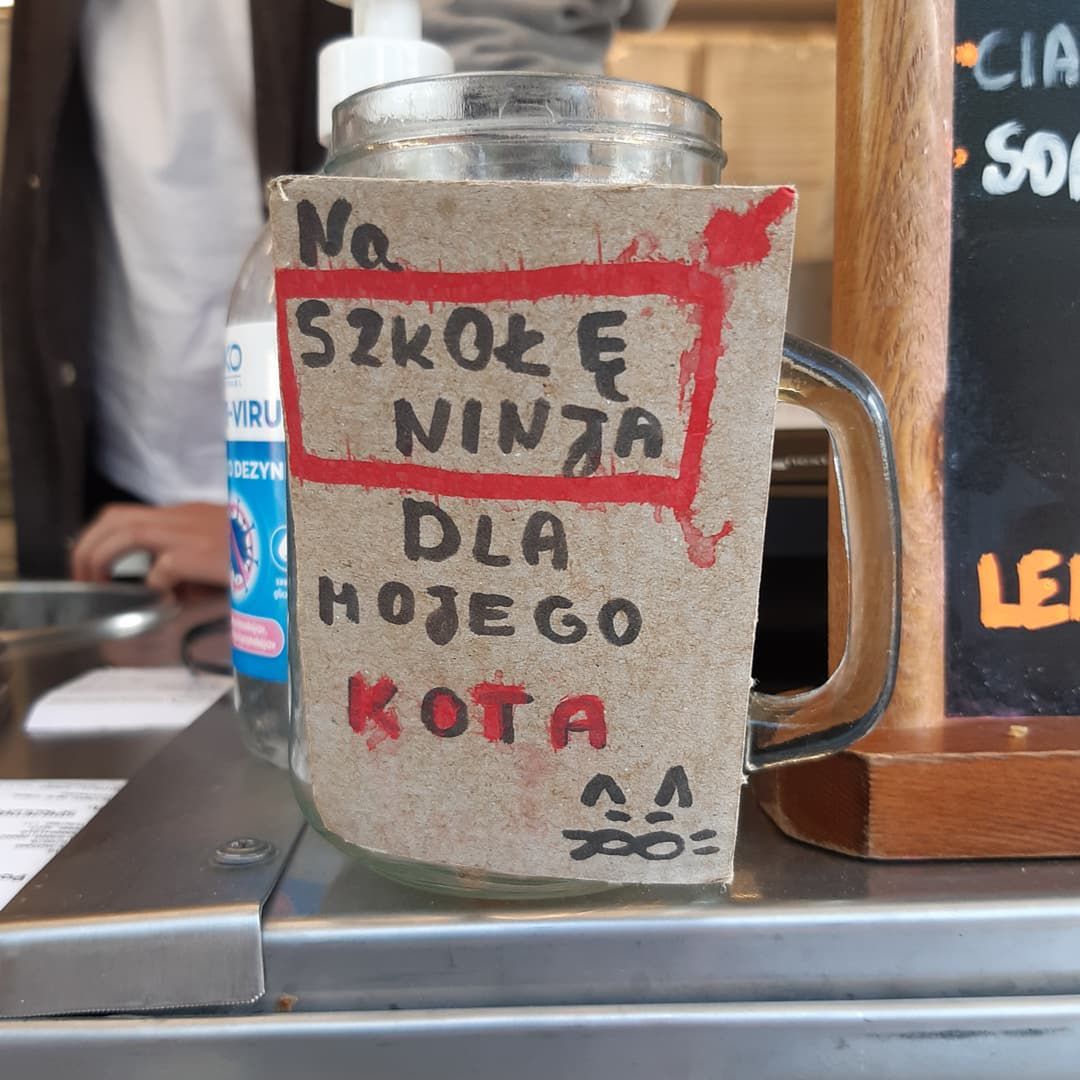 Na
SZKOŁĘ
NINJA
DLA
MOJEGO
KOTA
KO
-VIRU
O DEZYN
CIA
SOR
LEM